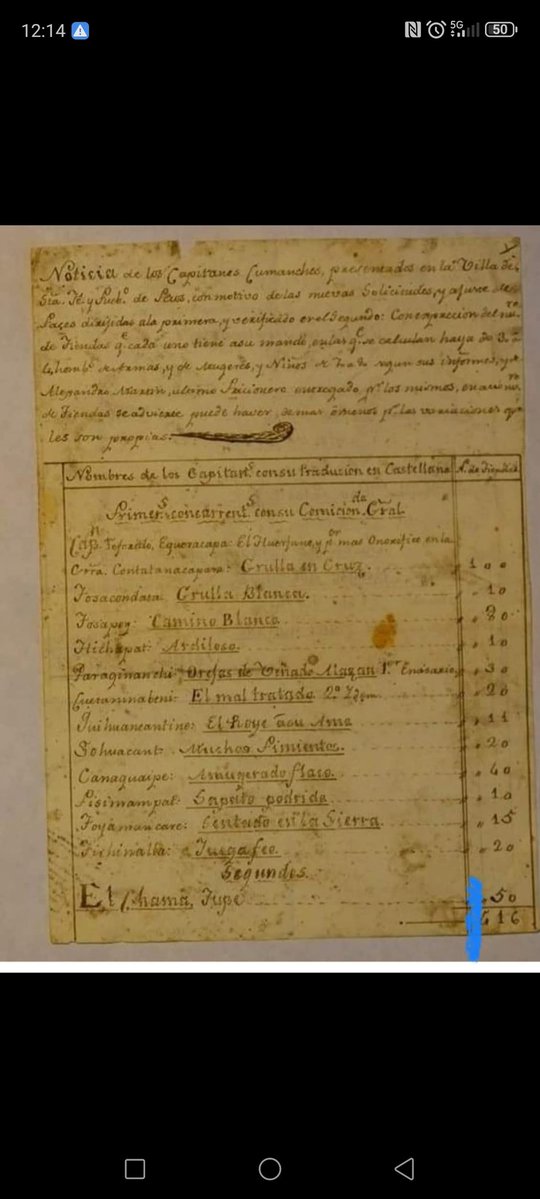 12:14
5G
50
Noticia de los Capitanes Cumanches, presentados en la Villa de
Sta. Fé y Pueb.o de Pecos, con motivo de las nuevas Solicitudes, y ajuste de
Paces dirijidas ala primera, y verificado en el Segundo: Con expreción del
de Tiendas q.e cada uno tiene asu mando, en las q.e se calculan haya de 3. á
4. homb.s de Armas, y de Mugeres, y Niños segun sus informes, y
Alejandro Martin, ultimo Pricionero entregado p.r los mismos,
de Tiendas se advierte puede haver, de mas ó menos p.r las variaciones q.e
les son propias.
Nombres de los Capitan.s con su traducion en Castellano N.o de Tiendas
Primer.s concurrent.s con su Comicion.do Gral
Cap.n Equeracapa: El Huerfano, y p.r mas Onorifico en la
Grra. Contatanacapara: Grulla en Cruz. 100
Tosacondata: Grulla Blanca. 10
Tosapoy: Camino Blanco 80
Hichapat: Ardiloso. 10
Paraginanchi: Orejas de Venado Alazan 1.r Enviado 30
Cuetaninabeni: El mal tratado 2.o Ydem 20
Tuihuaneantine: El que Oye a su Amo 11
Sohuacant: Muchos Pimientos. 20
Canaguaipe: Amugerado flaco. 40
Pisimampat: Sapato podrido 10
Toyamancare: Sentado en la Sierra. 15
Tichinalla: Juega feo. 20
Segundos.
El Chama, Tupe 50
616